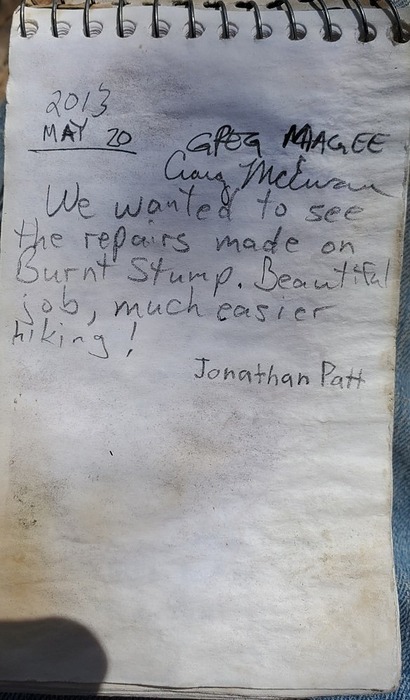 2013
MAY 20 GREG MAGEE
Craig McEwan
We wanted to see
the repairs made on
Burnt Stump. Beautiful
job, much easier
hiking!
Jonathan Patt